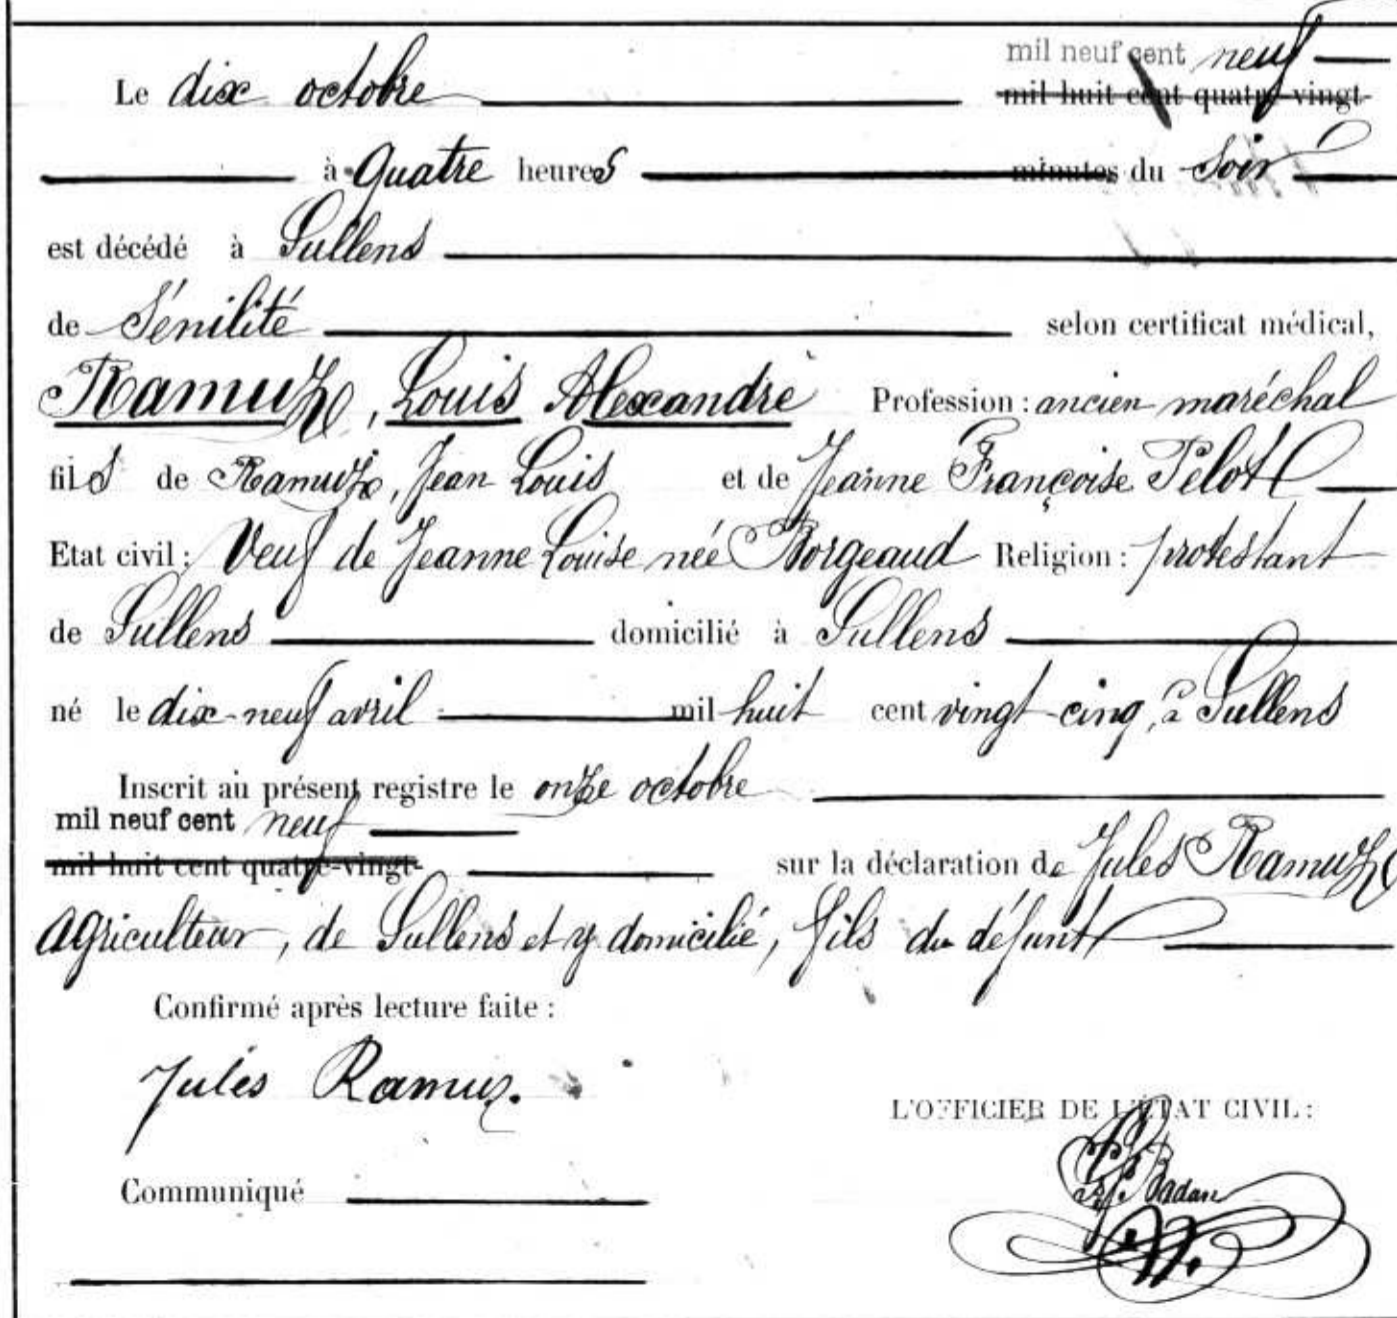 mil neuf cent neuf
Le dix octobre mil huit cent quatre-vingt-
à Quatre heures minutes du Soir
est décédé à Sullens
de Sénilité selon certificat médical,
Ramuz, Louis Alexandre Profession : ancien maréchal
fils de Ramuz, Jean Louis et de Jeanne Françoise Pelot
Etat civil : Veuf de Jeanne Louise née Borgeaud Religion : protestant
de Sullens domicilié à Sullens
né le dix-neuf avril mil huit cent vingt-cinq, à Sullens
Inscrit au présent registre le onze octobre
mil neuf cent neuf
mil huit cent quatre-vingt- sur la déclaration de Jules Ramuz
agriculteur, de Sullens et y domicilié, fils du défunt
Confirmé après lecture faite :
Jules Ramuz.
L'OFFICIER DE L'ÉTAT CIVIL :
Badan
Communiqué